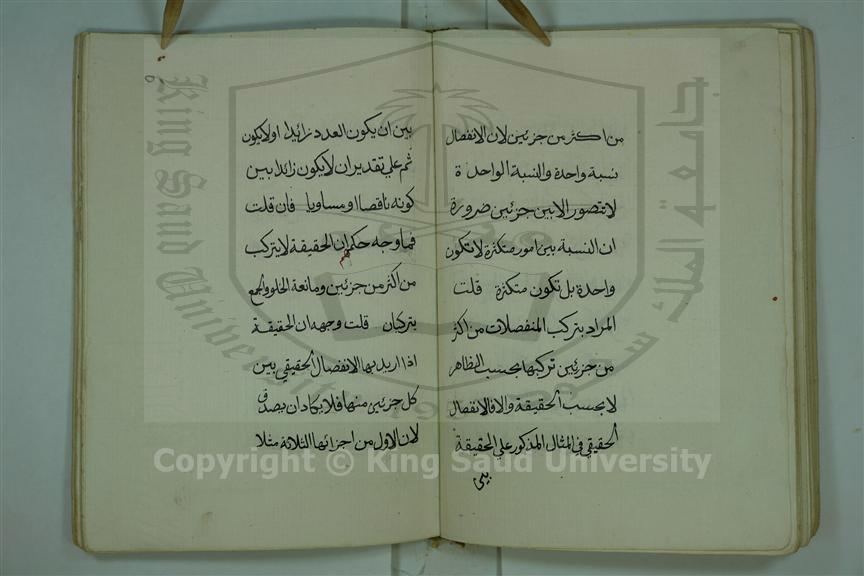 من اكثر من جزئين لان الانفصال
نسبة واحدة والنسبة الواحدة
لا تتصور الا بين جزئين ضرورة
ان النسبة بين امور متكثرة لا تكون
واحدة بل تكون متكثرة قلت
المراد بتركب المنفصلات من اكثر
من جزئين تركبها بحسب الظاهر
لا بحسب الحقيقة والا فالانفصال
الحقيقي في المثال المذكور علي الحقيقة
بين
بين ان يكون العدد زائدا او لا يكون
ثم علي تقدير ان لا يكون زائدا بين
كونه ناقصا او مساويا فان قلت
فما وجه حكمهم ان الحقيقة لا يتركب
من اكثر من جزئين ومانعة الخلو والجمع
يتركبان قلت وجهه ان الحقيقة
اذا اريد بها الانفصال الحقيقي بين
كل جزئين منها فلا يكاد ان يصدق
لان الاول من اجزائها الثلاثة مثلا
جامعة الملك سعود
King Saud University
Copyright © King Saud University